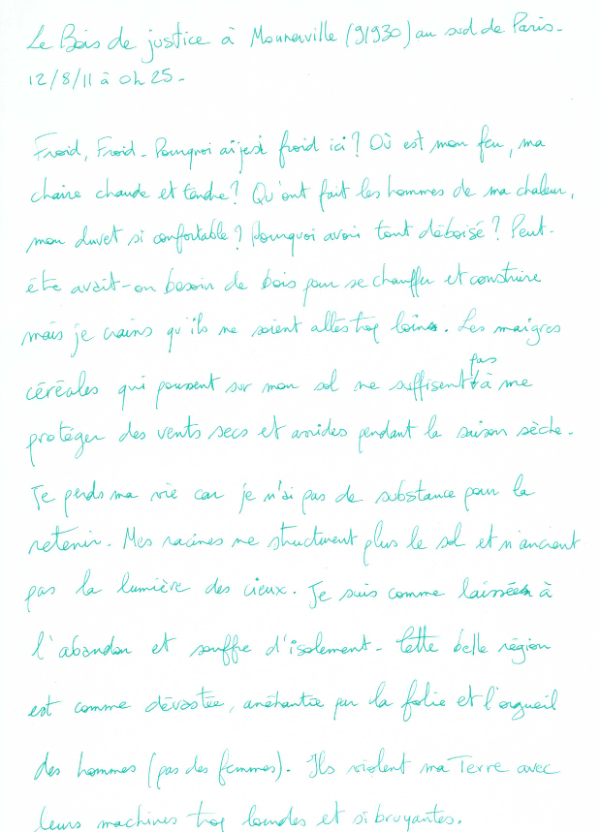 Le Bois de justice à Monnerville (91930) au sud de Paris -
12/8/11 à 0h25 -
Froid, Froid - Pourquoi ai je si froid ici ? Où est mon feu, ma
chaire chaude et tendre ? Qu'ont fait les hommes de ma chaleur,
mon duvet si confortable ? pourquoi avoir tout déboisé ? Peut-
être avait-on besoin de bois pour se chauffer et construire
mais je crains qu'ils ne soient allés trop loin. Les maigres
céréales qui poussent sur mon sol ne suffisent pas à me
protéger des vents secs et arrides pendant la saison sèche -
Je perds ma vie car je n'ai pas de substance pour la
retenir. Mes racines ne structurent plus le sol et n'ancrent
pas la lumière des cieux. Je suis comme laissée à
l'abandon et souffre d'isolement - Cette belle région
est comme dévastée, anéhantie par la folie et l'orgueil
des hommes (pas des femmes). Ils violent ma Terre avec
leurs machines trop lourdes et si bruyantes.